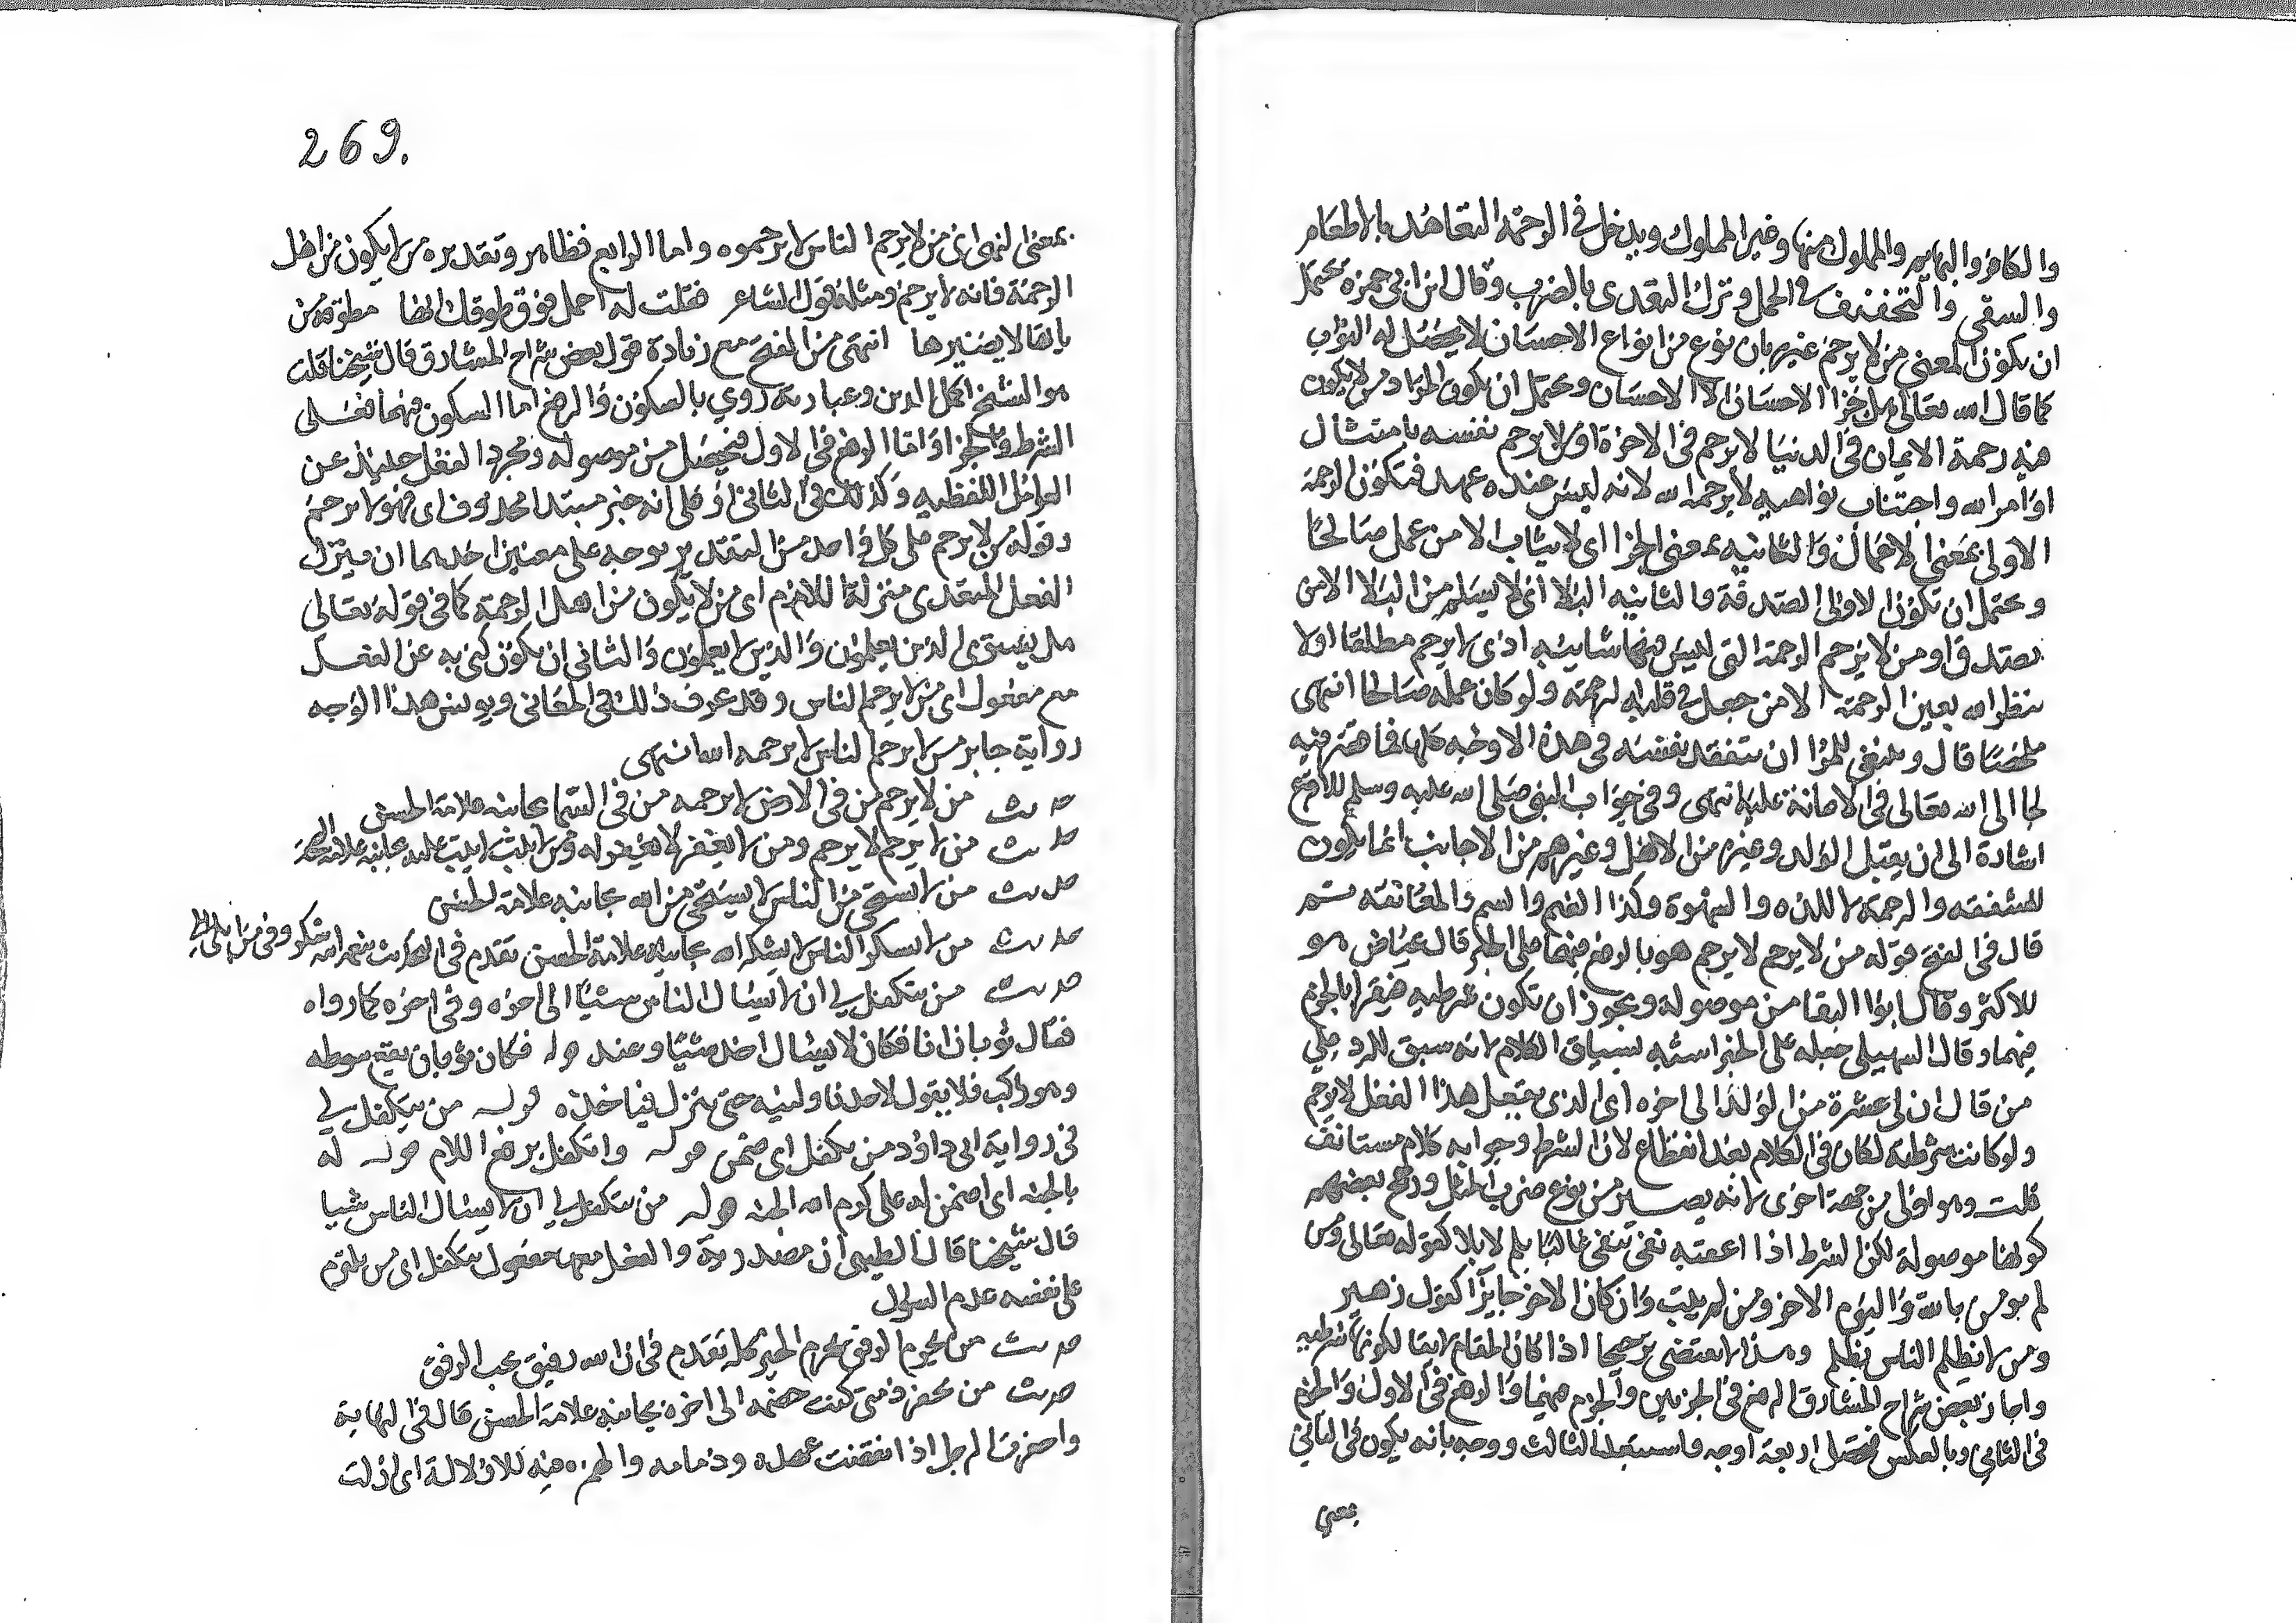 والكافر والبهايم والمملوك منها وغير المملوك ويدخل في الرحمة التعاهد بالاطعام
والسقي والتخفيف في الحمل وترك التعدي بالضرب وقال ابن ابي جمرة يحتمل
ان يكون المعنى من لا يرحم غيره باي نوع من انواع الاحسان لا يحصل له الثواب
كما قال الله تعالى هل جزا الاحسان الا الاحسان ويحتمل ان يكون المراد من لا يكون
فيه رحمة الايمان في الدنيا لا يرحم في الاخرة او من لا يرحم نفسه بامتثال
اوامر الله واجتناب نواهيه لا يرحمه الله لانه ليس عنده عهد فتكون الرحمة
الاولى بمعنى الاعمال والثانيه بمعنى الجزا اي لا يثاب الا من عمل صالحا
ويحتمل ان تكون الاولى الصدقة والثانيه البلا اي لا يسلم من البلا الا من
تصدق او من لا يرحم الرحمة التي ليس فيها شايبه اذى لا يرحم مطلقا او لا
ينظر الله بعين الرحمة الا من جعل في قلبه الرحمة ولو كان عمله صالحا انتهى
ملخصا قال وينبغي للمرا ان يتفقد نفسه في هذه الاوجه كلها فما قصر فيه
لجا الى الله تعالى في الاعانة عليه انتهى وفي جواب النبي صلى الله عليه وسلم للاقرع
اشارة الى ان تقبيل الولد وغيره من الاهل وغيرهم من الاجانب انما يكون
للشفقه والرحمة لا للذه والشهوة وكذا الضم والشم والمعانقه ستم
قال في الفتح قوله من لا يرحم لا يرحم هو بالرفع فيهما على الخبر قال عياض هو
للاكثر وقال ابوا البقا من موصولة ويجوز ان تكون شرطيه فيقرا بالجزم
فيهما وقال السهيلي حمله على الخبر اشبه بسياق الكلام لانه سيق للرد على
من قال ان لي عشرة من الولد الى اخره اي الذي يفعل هذا الفعل لا يرحم
ولو كانت شرطيه لكان في الكلام بعد انقطاع لان الشرط وجوابه كلام مستانف
قلت وهو اولى من جهة اخرى لانه يصير من نوع ضرب المثل ورجح بعضهم
كونها موصولة لكن الشرط اذا اعقبه نفي ينفى غالبا بلم لا بلا كقوله تعالى ومن
لم يومن بالله واليوم الاخر ومن لم يتب وان كان الاخر جايزا كقول زهير
ومن لا يظلم الناس يظلم وهذا لا يقتضي ترجيحا اذا كان المقام لايقا لكونها شرطيه
واجاز بعض شراح المشارق الرفع في الجزيين والجزم فيهما والرفع في الاول والجزم
في الثاني وبالعكس فيحصل اربعة اوجه واستبعد الثالث ووجه بانه يكون في الثاني
بمعنى
269.
بمعنى النهي اي من لا يرحم الناس لا يرحموه واما الرابع فظاهر وتقديره من لا يكون من اهل
الرحمة فانه لا يرحم ومثله قول الشاعر فقلت له احمل فوق طوقك انها مطوقة من
ياتها لا يضيرها انتهى من الفتح مع زيادة قول بعض شراح المشارق قال شيخنا قلت
هو الشيخ اكمل الدين وعبارته روي بالسكون والرفع اما السكون فيهما فعلى
الشرط والجزا واما الرفع في الاول فيحصل من موصوله ومجرد الفعل حينئذ عن
العوامل اللفظيه وكذلك في الثاني او على انه خبر مبتدا محذوف اي فهو لا يرحم
وقوله من لا يرحم على كل واحد من التقدير يوجه على معنيين احدهما ان ينزل
الفعل المتعدي منزلة اللازم اي من لا يكون من اهل الرحمة كما في قوله تعالى
هل يستوي الذين يعلمون والذين لا يعلمون والثاني ان يكون كني به عن الفعل
مع مفعول اي من لا يرحم الناس وقد عرف ذلك في المعاني ويونس هذا الوجه
رواية جابر من لا يرحم الناس لا يرحمه الله انتهى
حديث من لا يرحم من في الارض لا يرحمه من في السما بجانبه علامة الحسن
حديث من لا يرحم لا يرحم ومن لا يغفر لا يغفر له ومن لا يتب لا يتب عليه بجانبه علامة الصحة
حديث من لا يستحي من الناس لا يستحي من الله بجانبه علامة الحسن
حديث من لا يشكر الناس لا يشكر الله بجانبه علامة الحسن تقدم في
حديث من يتكفل لي ان لا يسال الناس شيئا الى اخره وفي اخره كما رواه
فقال ثوبان انا فكان لا يسال احد شيئا وعند فكان ثوبان يقع سوطه
وهو راكب فلا يقول لاحد ناولنيه حتى ينزل فياخذه قوله من يتكفل لي
في رواية ابي داود من يكفل اي ضمن قوله واتكفل برفع اللام قوله له
بالجنه اي اضمن له على كرم الله الجنه قوله من يتكفل لي ان لا يسال الناس شيا
قال شيخنا قال الطيبي ان مصدرية والفعل معها مفعول يتكفل اي من يلتزم
على نفسه عدم السوال
حديث من يحرم الرفق يحرم الخير كله تقدم في ان الله رفيق يحب الرفق
حديث من يخفر ذمتي كنت خصمه الى اخره بجانبه علامة الحسن قال في النهاية
واخفرت الرجل اذا نقضت عهده وذمامه والهمزة فيه للازالة اي ازلت